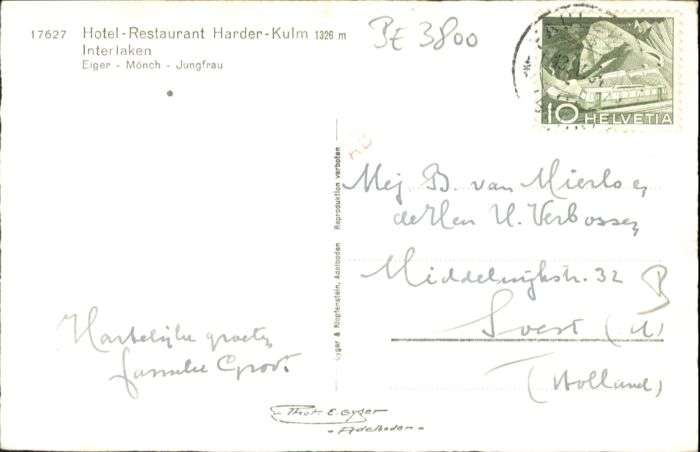 17627 Hotel-Restaurant Harder-Kulm 1326 m
Interlaken
Eiger - Mönch - Jungfrau
BE 3800
10 HELVETIA
Reproduktion verboten
Gyger & Klopfenstein, Adelboden
Mej B. van Mierlo en
de Her H. Verbossen
Middelwijkstr. 32 B
Soest (U)
(Holland)
Hartelijke groeten
familie Groot.
Phot. E. Gyger
- Adelboden -